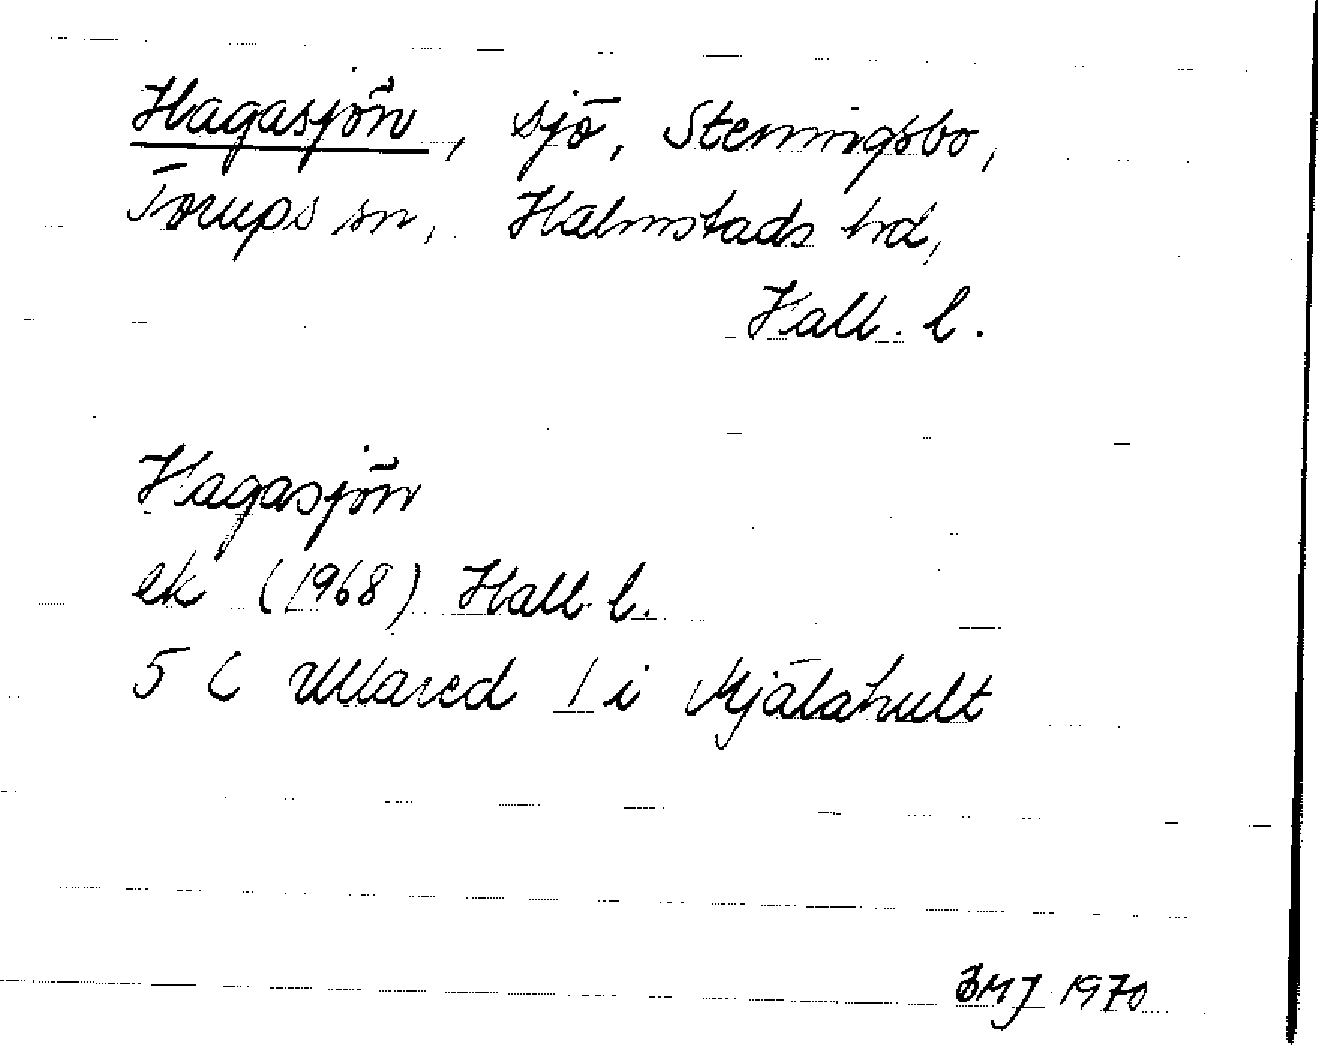 Hagasjön, sjö, Stenningsbo,
Torups sn, Halmstads hd,
Hall. l.
Hagasjön
ek (1968) Hall. l.
5 C Ullared 1 i Mjälahult
BMJ 1970